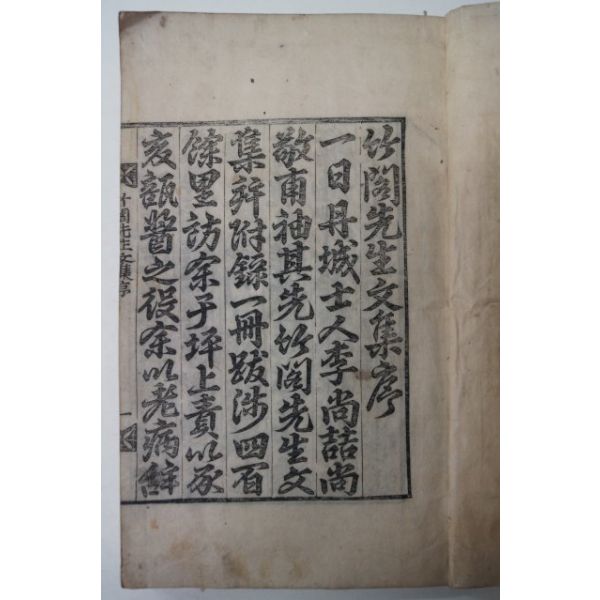 竹閣先生文集序
一日丹城士人李尚喆尚
敬甫袖其先竹閣先生文
集并附錄一冊跋涉四百
餘里訪余于坪上責以
之役余以老病辭
竹閣先生文集序 一